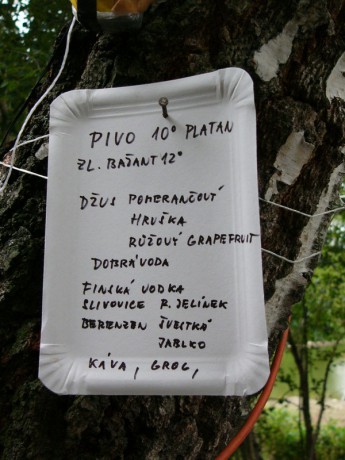 PIVO 10° PLATAN
ZL. BAŽANT 12°
DŽUS POMERANČOVÝ
HRUŠKA
RŮŽOVÝ GRAPEFRUIT
DOBRÁ VODA
FINSKÁ VODKA
SLIVOVICE R. JELÍNEK
BERENZEN ŠVESTKÁ
JABLKO
KÁVA, GROG,